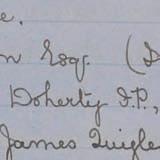 e.
n Esq. (D
Doherty J.P.,
James Quigle